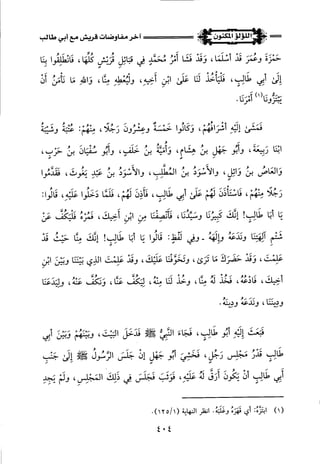 اللؤلؤ المكنون آخر مفاوضات قريش مع أبي طالب
حمزة وعمر قد أسلما، وقد فشا أمر محمد في قبائل قريش كلها، فانطلقوا بنا
إلى أبي طالب، فليأخذ لنا على ابن أخيه، وليعطه منا، والله ما نأمن أن
يبتزونا(١) أمرنا.
فمشى إليه أشرافهم، وكانوا خمسة وعشرين رجلا، منهم: عتبة وشيبة
ابنا ربيعة، وأبو جهل بن هشام، وأمية بن خلف، وأبو سفيان بن حرب،
والعاص بن وائل، والأسود بن المطلب، والأسود بن عبد يغوث، فقدموا
رجلا منهم، فاستأذن لهم على أبي طالب، فأذن لهم، فلما دخلوا عليه، قالوا:
يا أبا طالب! إنك كبيرنا وسيدنا، فأنصفنا من ابن أخيك، فمره، فليكف عن
شتم آلهتنا وندعه وإلهه - وفي لفظ: قالوا يا أبا طالب! إنك منا حيث قد
علمت، وقد حضرك ما ترى، وتخوفنا عليك، وقد علمت الذي بيننا وبين ابن
أخيك، فادعه، فخذ له منا، وخذ لنا منه، ليكف عنا، ونكف عنه، وليدعنا
وديننا، وندعه ودينه.
فبعث إليه أبو طالب، فجاء النبي ﷺ فدخل البيت، وبينهم وبين أبي
طالب قدر مجلس رجل، فخشي أبو جهل إن جلس الرسول ﷺ إلى جنب
أبي طالب أن يكون أرق له عليه، فوثب فجلس في ذلك المجلس، ولم يجد
(١) ابتزه: أي قهره وغلبه. انظر النهاية (١/١٢٥).
٤٠٤